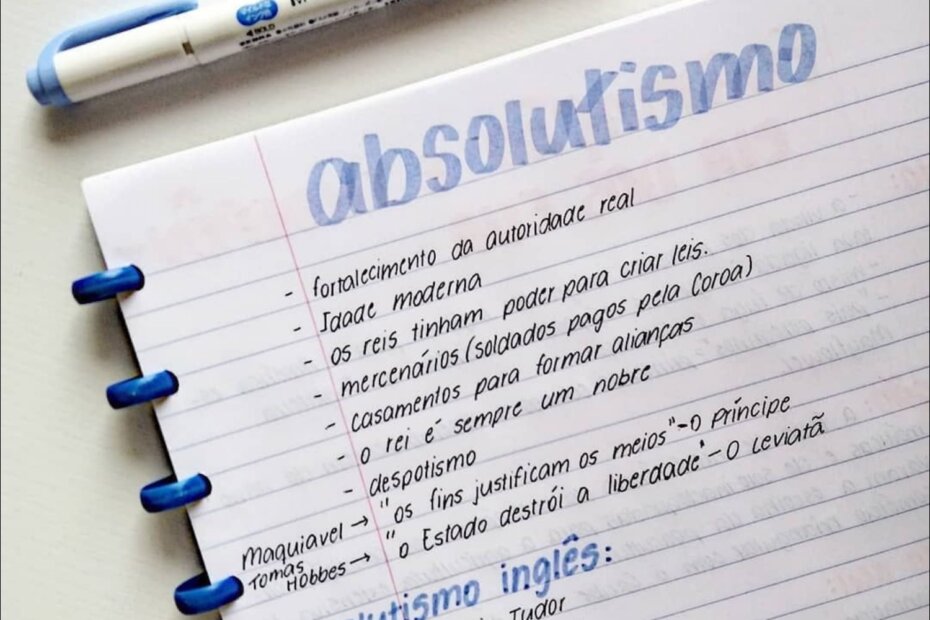 absolutismo
- fortalecimento da autoridade real
- Idade moderna
- os reis tinham poder para criar leis.
- mercenários (soldados pagos pela Coroa)
- casamentos para formar alianças
- o rei é sempre um nobre
- despotismo
Maquiavel → "os fins justificam os meios" - O Príncipe
Tomas Hobbes → "o Estado destrói a liberdade" - O Leviatã
inglês:
Tudor